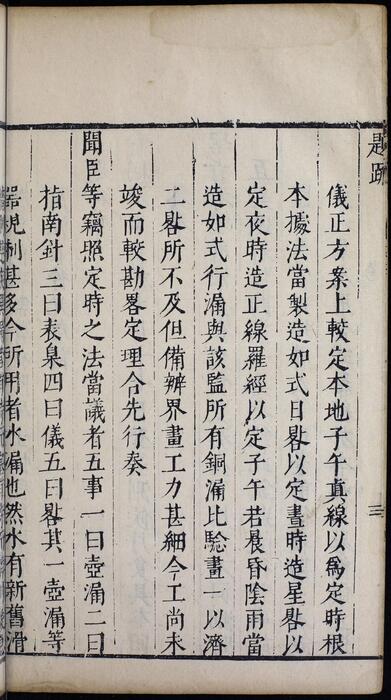 題疏
三
儀正方案上較定本地子午直線以為定時根
本據法當製造如式日晷以定晝時造星晷以
定夜時造正線羅經以定子午若晨昏陰雨當
造如式行漏與該監所有銅漏比驗畫一以濟
二晷所不及但備辨界畫工力甚細今工尚未
竣而較勘畧定理合先行奏
聞臣等竊照定時之法當議者五事一曰壺漏二曰
指南針三曰表臬四曰儀五曰晷其一壺漏等
器規制甚多今所用者水漏也然水有新舊滑